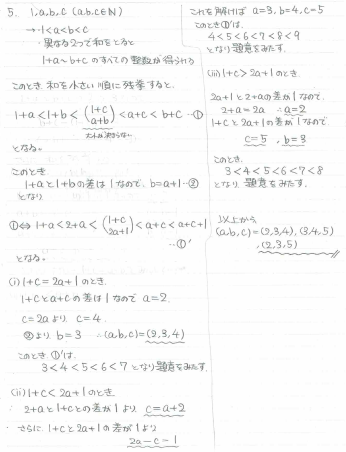 5. 1,a,b,c (a,b,c∈N)
→・1<a<b<c
・異なる2つで和をとると
1+a~b+cのすべての整数が得られる
このとき和を小さい順に列挙すると、
1+a<1+b<(1+c
a+b)<a+c<b+c ―①
大小が決まらない
となる。
このとき
1+aと1+bの差は1なので、b=a+1―②
となり
①⇔ 1+a<2+a<(1+c
2a+1)<a+c<a+c+1
―①'
となる。
(i) 1+c=2a+1のとき.
1+cとa+cの差は1なのでa=2.
c=2aより c=4.
②より b=3 ∴(a,b,c)=(2,3,4)
このとき①'は.
3<4<5<6<7 となり題意をみたす.
(ii) 1+c<2a+1のとき.
2+aと1+cとの差が1より c=a+2
さらに 1+cと2a+1の差が1より
2a-c=1
これを解けば a=3, b=4, c=5
このとき①'は.
4<5<6<7<8<9
となり題意をみたす.
(iii) 1+c>2a+1のとき.
2a+1と2+aの差が1なので、
2+a=2a ∴a=2
1+cと2a+1の差が1なので
c=5, b=3
このとき.
3<4<5<6<7<8
となり題意をみたす.
以上から
(a,b,c)=(2,3,4),(3,4,5)
,(2,3,5)